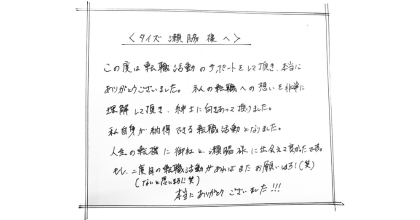 ＜タイズ 瀬脇様へ＞
この度は転職活動のサポートをして頂き、本当に
ありがとうございました。私の転職への想いを非常に
理解して頂き、紳士に向きあって頂けました。
私自身が納得できる転職活動となりました。
人生の転機に御社と瀬脇様に出会えて良かったです。
もし、二度目の転職活動があればまたお願いします!(笑)
(ないと思いますが 笑)
本当にありがとうございました!!!